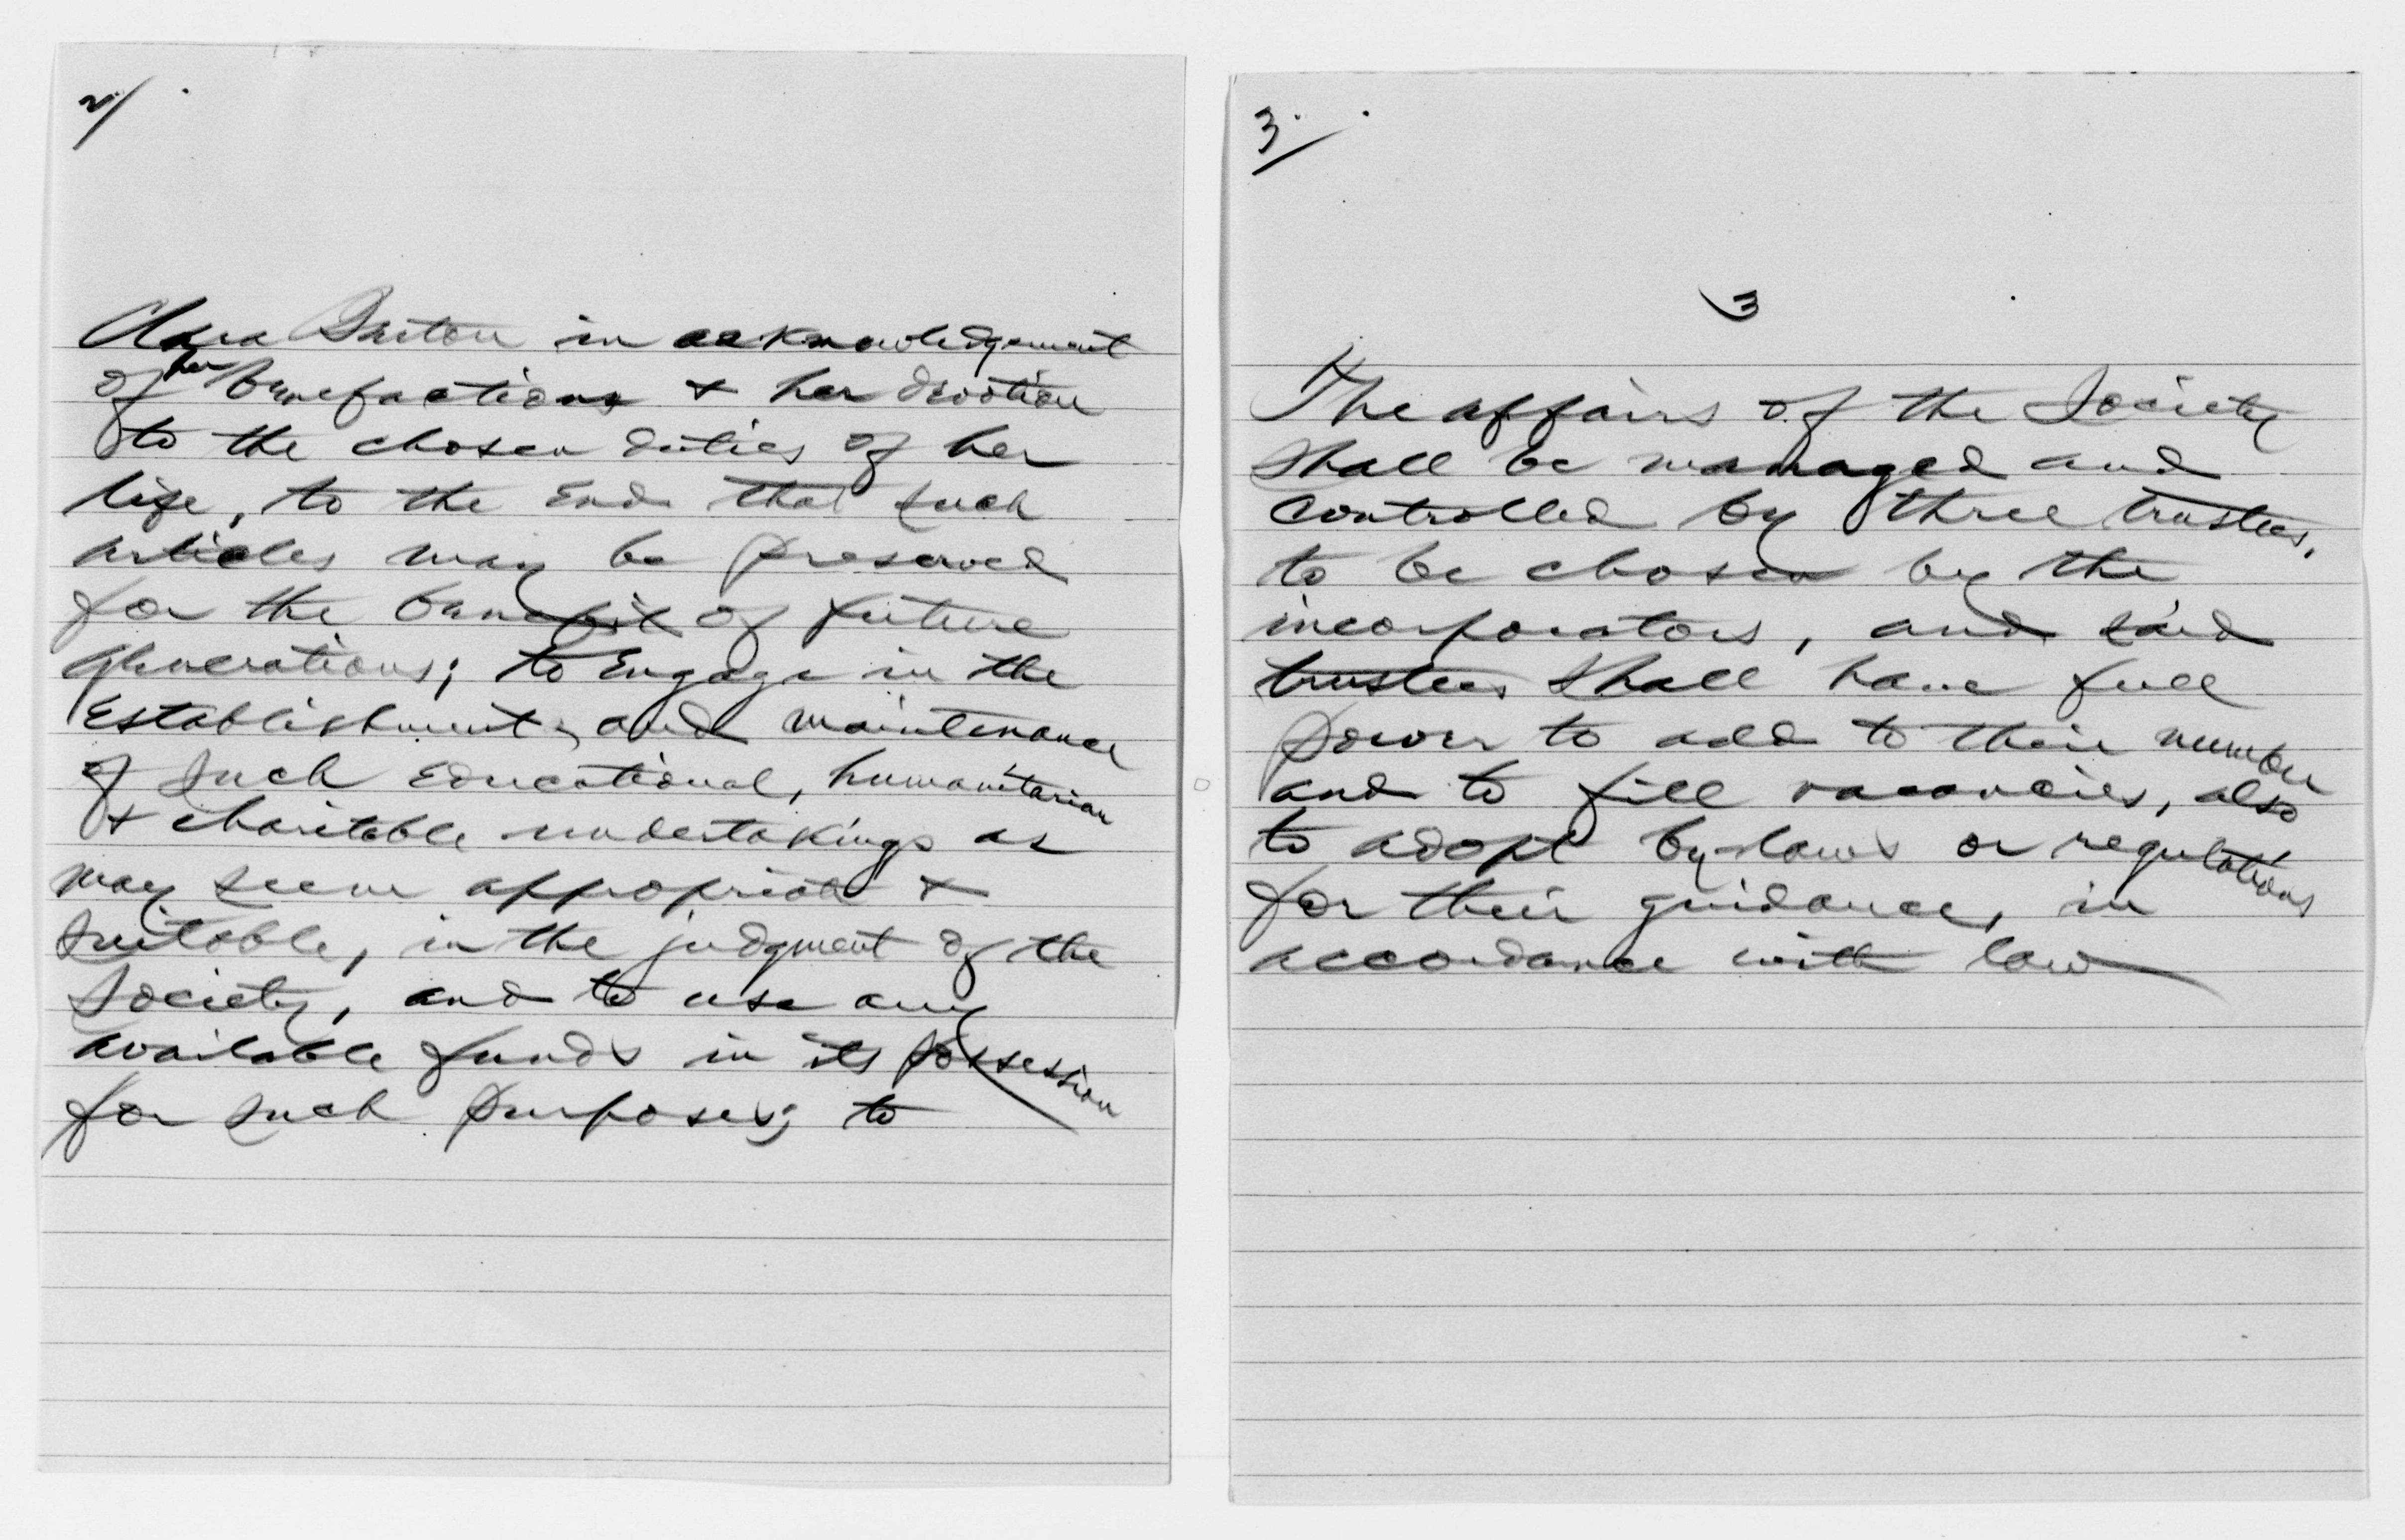 2/
Clara Barton in acknowledgement
of her benefactions & her devotion
to the chosen duties of her
life, to the End that such
articles may be preserved
for the benefit of future
generations; to Engage in the
Establishment, and maintenance
of such Educational, humanitarian
& charitable undertakings as
may seem appropriate &
suitable, in the judgment of the
Society, and to use any
available funds in its possession
for such purposes; to
3.
3
The affairs of the Society
shall be managed and
controlled by three trustees,
to be chosen by the
incorporators, and said
trustees shall have full
power to add to their number
and to fill vacancies, also
to adopt by-laws or regulations
for their guidance, in
accordance with law